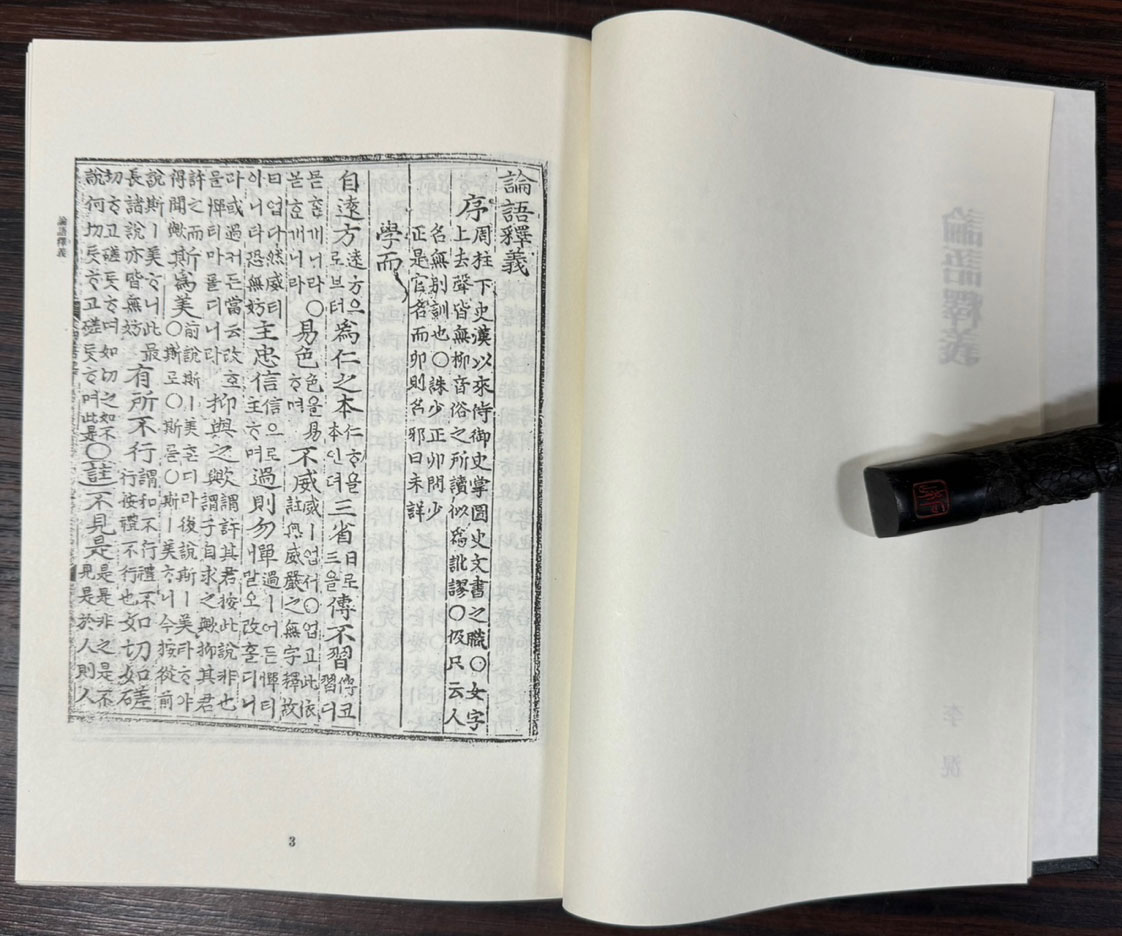 論語釋義
序
周柱下史漢以來侍御史掌圖史文書之職○女字
上去聲皆無柳音俗之所讀似爲訛謬○伋只云人
名無別訓也○誅少正卯問少
正是官名而卯則名邪曰未詳
學而
自遠方 遠方으로브터 爲仁之本 仁호을 本인뎌 三省 日로 三을 傳不習 傳코 習디
몯혼개니라○ 易色 色을 易호며 不威 威ㅣ업서○업고此依
註與威嚴之無字釋故
曰업다然威티
아니타恐無妨 主忠信 信으로 主호며 過則勿憚 過ㅣ어든憚티
말오改홀디니
라或過거든當云改호
믈憚티마롤디니라 抑與之歟 謂許其君按此說非也
謂子自求之歟抑其君
許之而
得聞歟 斯爲美 ○前說斯ㅣ美혼디라後說斯ㅣ美라ᄒᆞ야
斯로○斯를○斯ㅣ美ᄒᆞ니今按從前
說斯ㅣ美ᄒᆞ니此最
長諸說亦皆無妨 有所不行 謂和不行禮不
行按禮不行也 如切如磋
切ᄒᆞ고磋ᄐᆞᆺᄒᆞ며如切之如不
說何切ᄐᆞᆺᄒᆞ고磋ᄐᆞᆺᄒᆞ며此是 ○註不見是 是是非之是不
見是於人則人
論語釋義
3
論語釋義
李滉